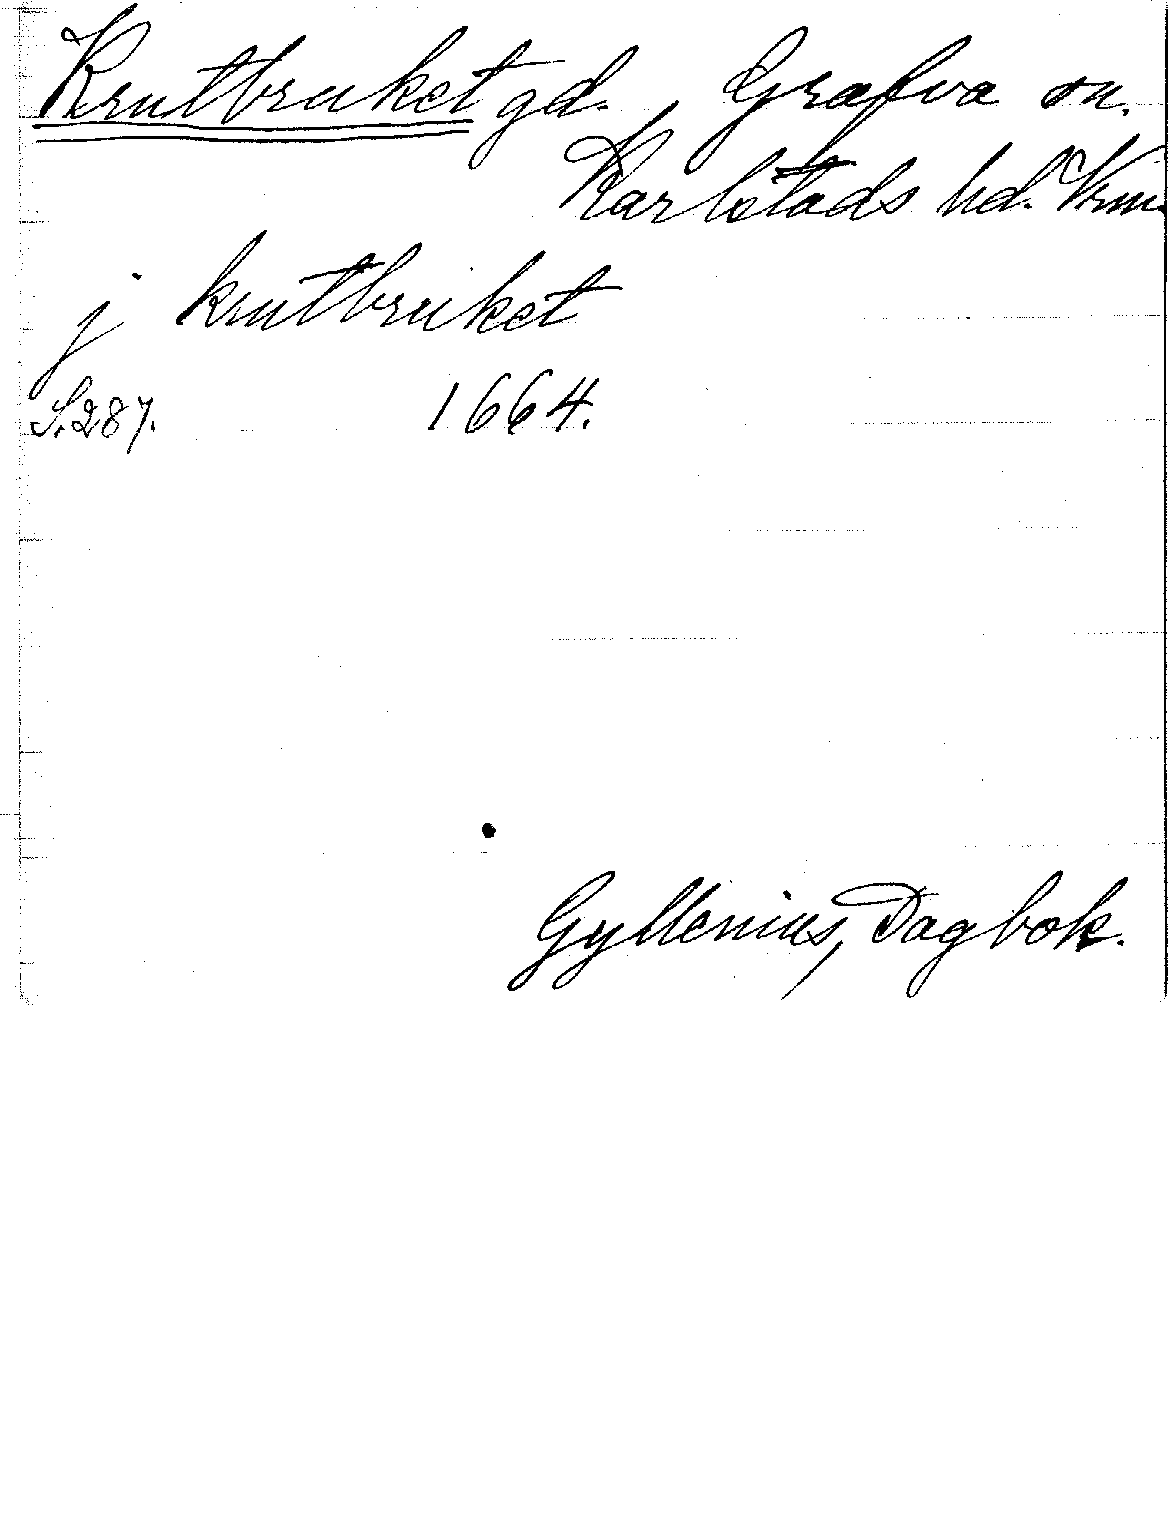 Krutbruket gd., Grafva sn.
Karlstads hd. Vrm.
j krutbruket
S. 287. 1664.
Gyllenius, Dagbok.